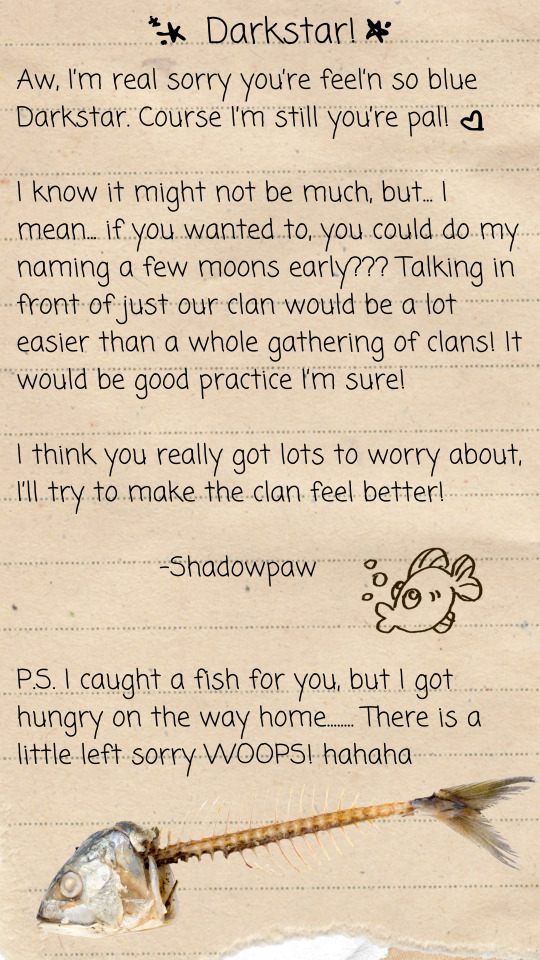 Darkstar!
Aw, I'm real sorry you're feel'n so blue
Darkstar. Course I'm still you're pal!
I know it might not be much, but... I
mean... if you wanted to, you could do my
naming a few moons early??? Talking in
front of just our clan would be a lot
easier than a whole gathering of clans! It
would be good practice I'm sure!
I think you really got lots to worry about,
I'll try to make the clan feel better!
-Shadowpaw
P.S. I caught a fish for you, but I got
hungry on the way home........ There is a
little left sorry WOOPS! hahaha